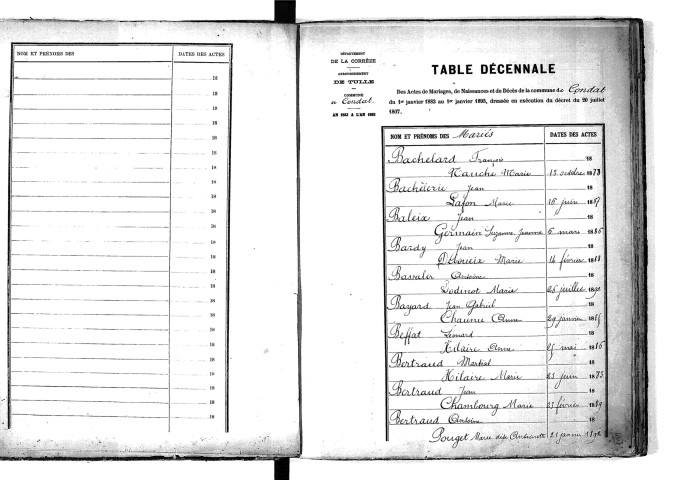 NOM ET PRÉNOMS DES DATES DES ACTES
18
18
18
18
18
18
18
18
18
18
18
18
18
18
18
18
18
18
18
18
18
18
18
18
DÉPARTEMENT
DE LA CORRÈZE
ARRONDISSEMENT
DE TULLE
COMMUNE
de Condat
AN 1883 A L'AN 1893
TABLE DÉCENNALE
Des Actes de Mariages, de Naissances et de Décès de la commune de Condat
du 1er janvier 1883 au 1er janvier 1893, dressée en exécution du décret du 20 juillet
1807.
NOM ET PRÉNOMS DES Mariés DATES DES ACTES
Bachelard François 18
Nauche Marie 13 octobre 18
Bachèlerie Jean 18
Lafon Marie 18 juin 18
Baleix Jean 18
Germain Suzanne Jeanne 6 mars 1886
Bardy Jean 18
Marie 14 février 18
Bassaler Antoine 18
Marie 26 juillet 18
Bayard Jean Gabriel 18
Chaunu Anne 29 janvier 18
Beffat Léonard 18
Hilaire Anne mai 1886
Bertraud Martial 18
Hilaire Marie juin 18
Bertraud Jean 18
Chambourg Marie février 18
Bertraud Antoine 18
Pouget Marie dite Antoinette 21 janvier 18